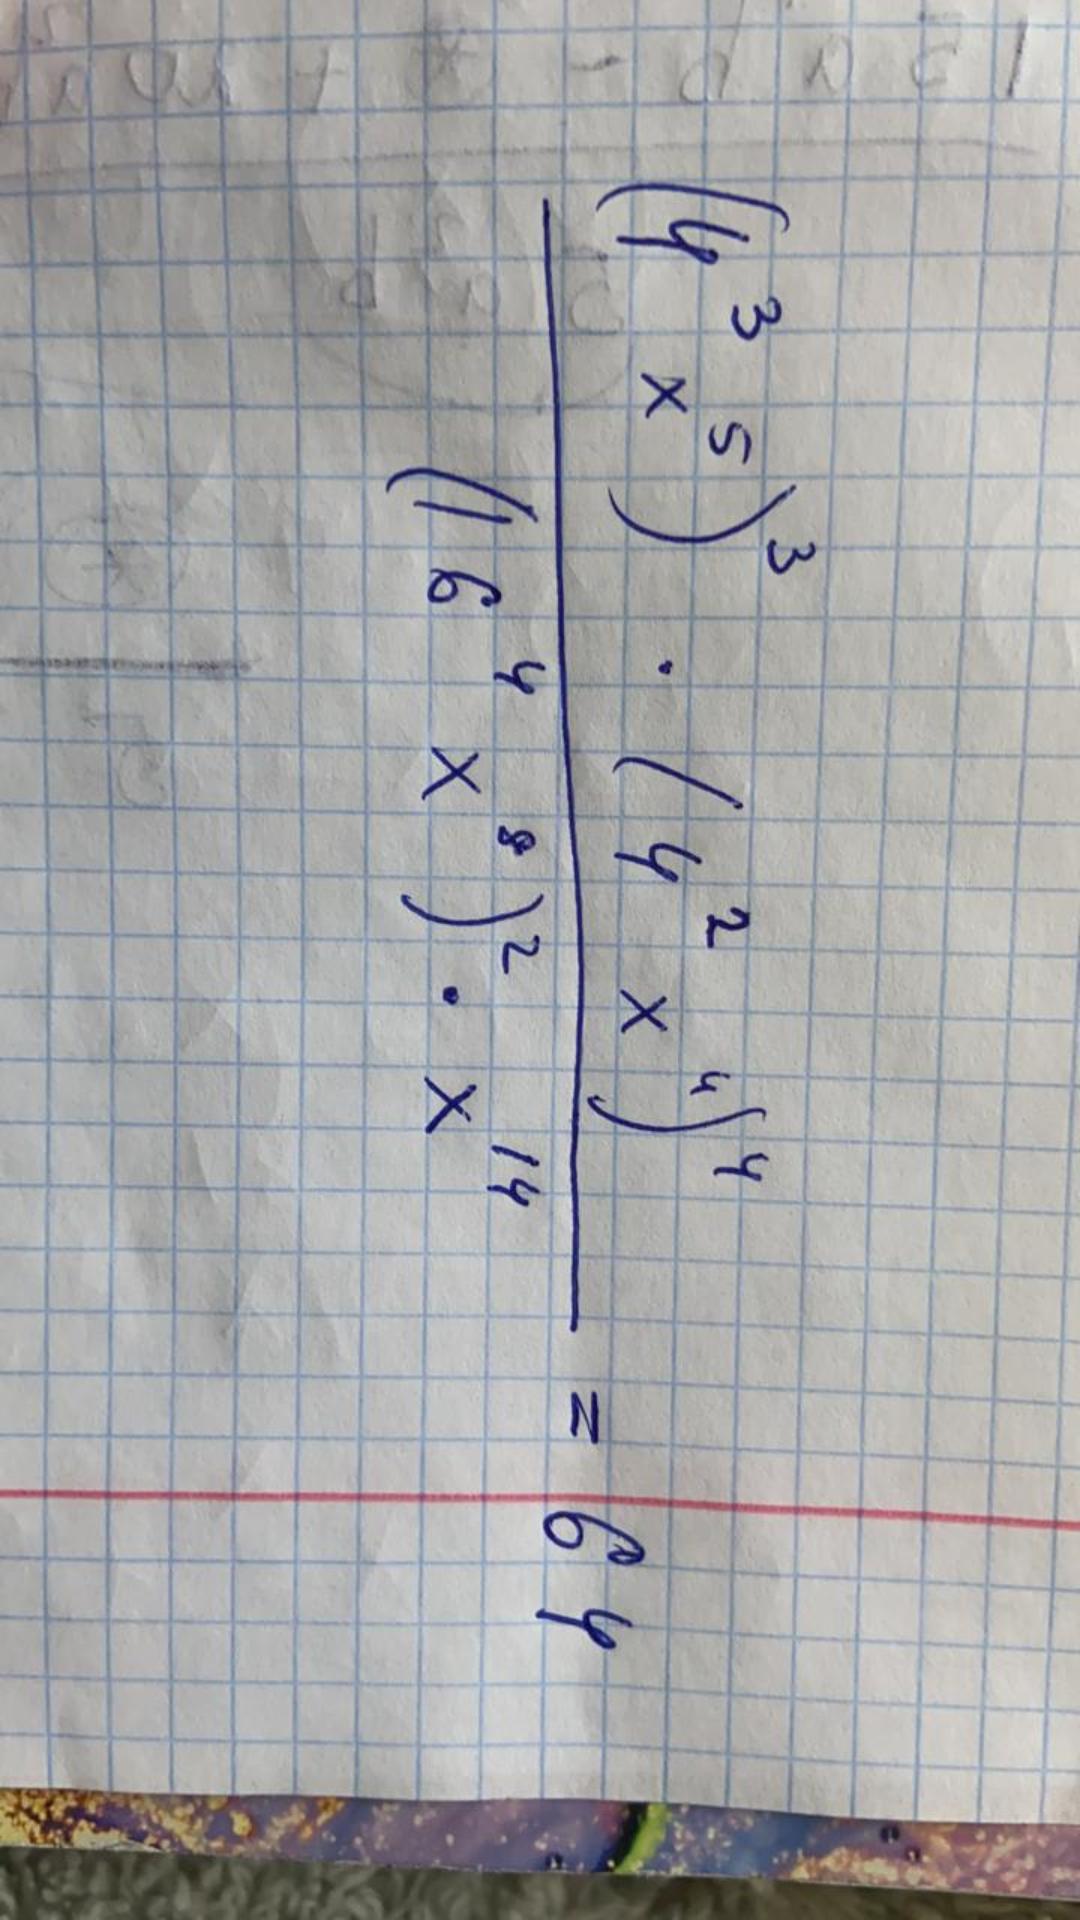 (4³ x⁵)³ · (4² x⁴)⁴
= 64
(16⁴ x⁸)² · x¹⁴